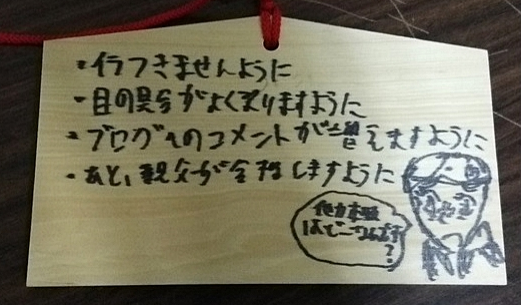 ・イラつきませんように
・目の具合がよくなりますように
・ブログへのコメントが増えますように
・あと、親父が合格しますように
他力本願
はどーなんだ
?